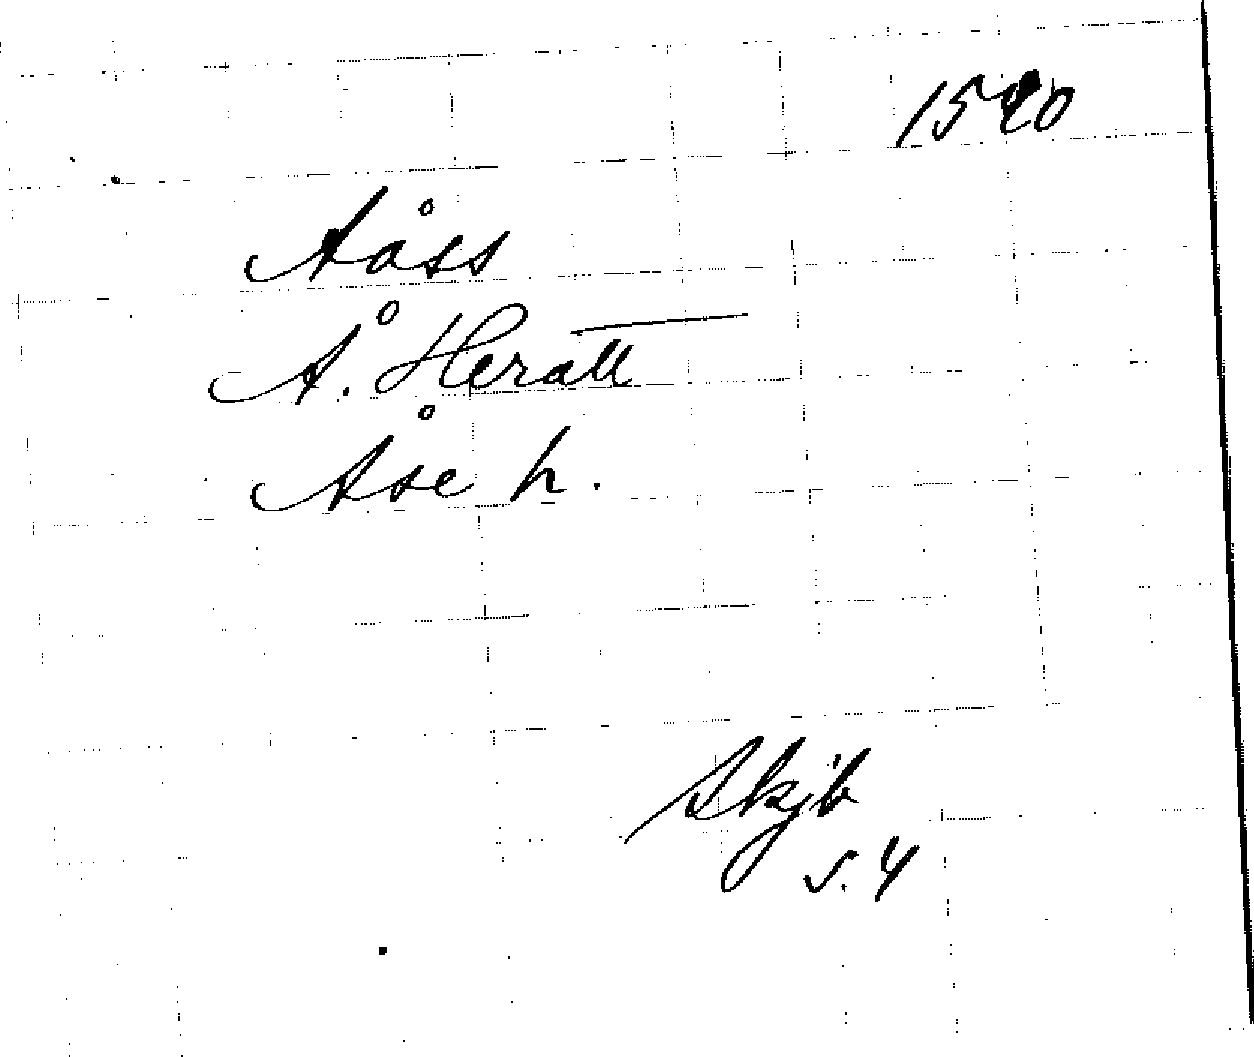 1520
Aåss
Å. Herall
Åse h.
Skjb
s. 4